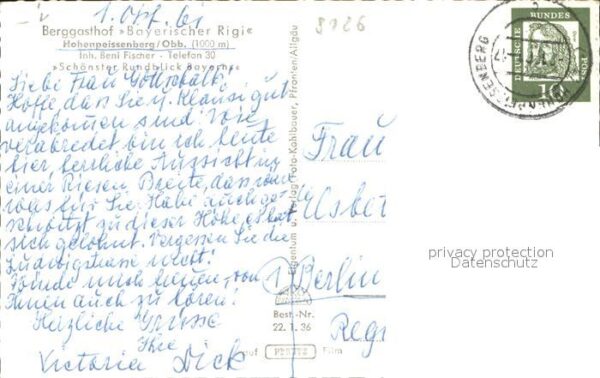 1. Okt. 61
8126
Berggasthof »Bayerischer Rigi«
Hohenpeissenberg/Obb. (1000 m)
Inh. Beni Fischer - Telefon 30
»Schönster Rundblick Bayerns«
Liebe Frau Gottschalk!
Hoffe, dass Sie u. Klausi gut
angekommen sind. Wie
verabredet bin ich heute
hier, herrliche Aussicht in
einer Riesen Breite, das wäre
was für Sie. Habe auch ge-
zu dieser Höhe, es hat
sich gelohnt. Vergessen Sie die
Ludwigstrasse nicht!
Würde mich freuen, von
Ihnen auch zu hören!
Herzliche Grüsse
Ihre
Victoria Dick
Eigentum u. Verlag Foto-Kohlbauer, Pfronten/Allgäu
Best.-Nr.
22.1.36
auf PERUTZ Film
DEUTSCHE BUNDESPOST
10
HOHENPEISSENBERG
Frau
Elsbet
1 Berlin
Reg
privacy protection
Datenschutz